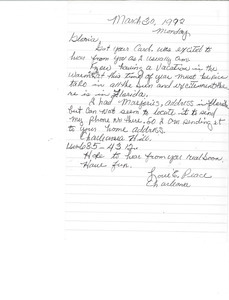 March 30, 1992
Monday
Gloria,
Got your Card. was excited to
hear from you as I usually am
having a Vacation in the
warmth at this time of year must be nice
take in all the sun and excitement there
is in Florida.
I had Marjorie's address in
but can not seem to locate it to send
my phone No there. So I am sending it
to your home address.
Charlema
685-43
Hope to hear from you real soon
Have fun.
Love & Peace
Charlema